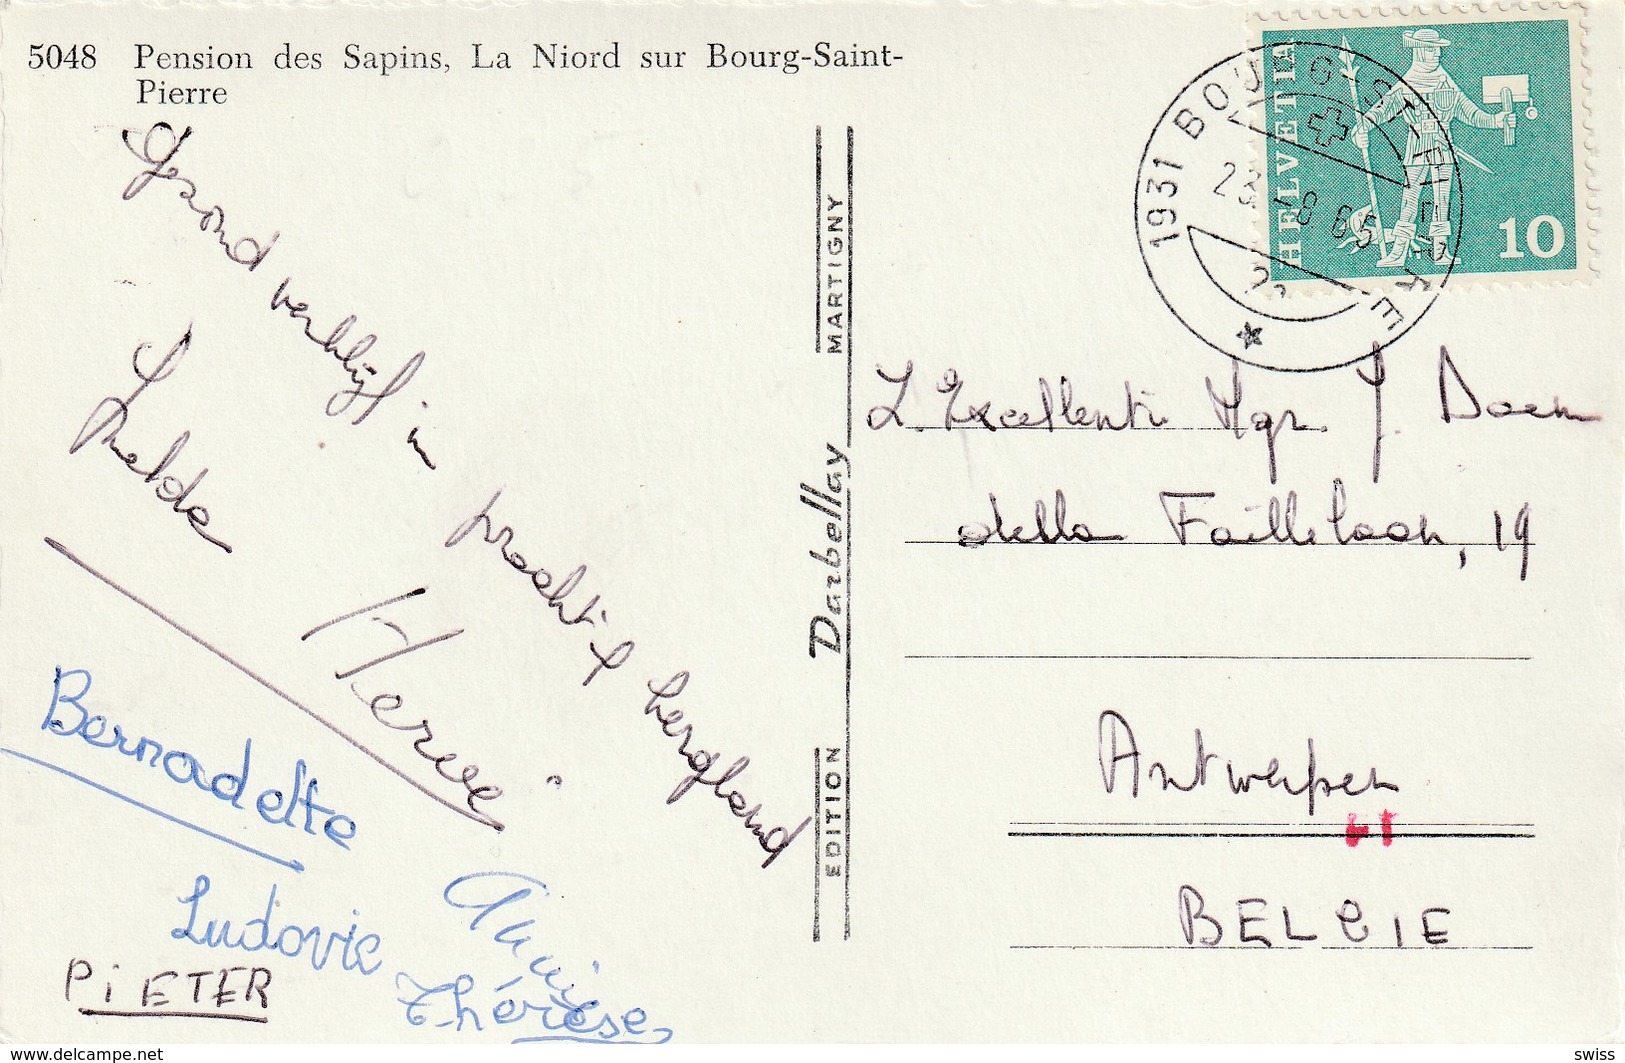 5048 Pension des Sapins, La Niord sur Bourg-Saint-
Pierre
Gezond verblijf in prachtig bergland
Imelda
Herwe
Bernadette
Ludovic
PiETER
Thérèse
EDITION Darbellay MARTIGNY
1931 BOURG-ST-PIERRE
23-8 65
HELVETIA
10
Z. Excellentie Mgr. J. Daem
della Faillelaan, 19
Antwerpen
BELGIE
www.delcampe.net
swiss